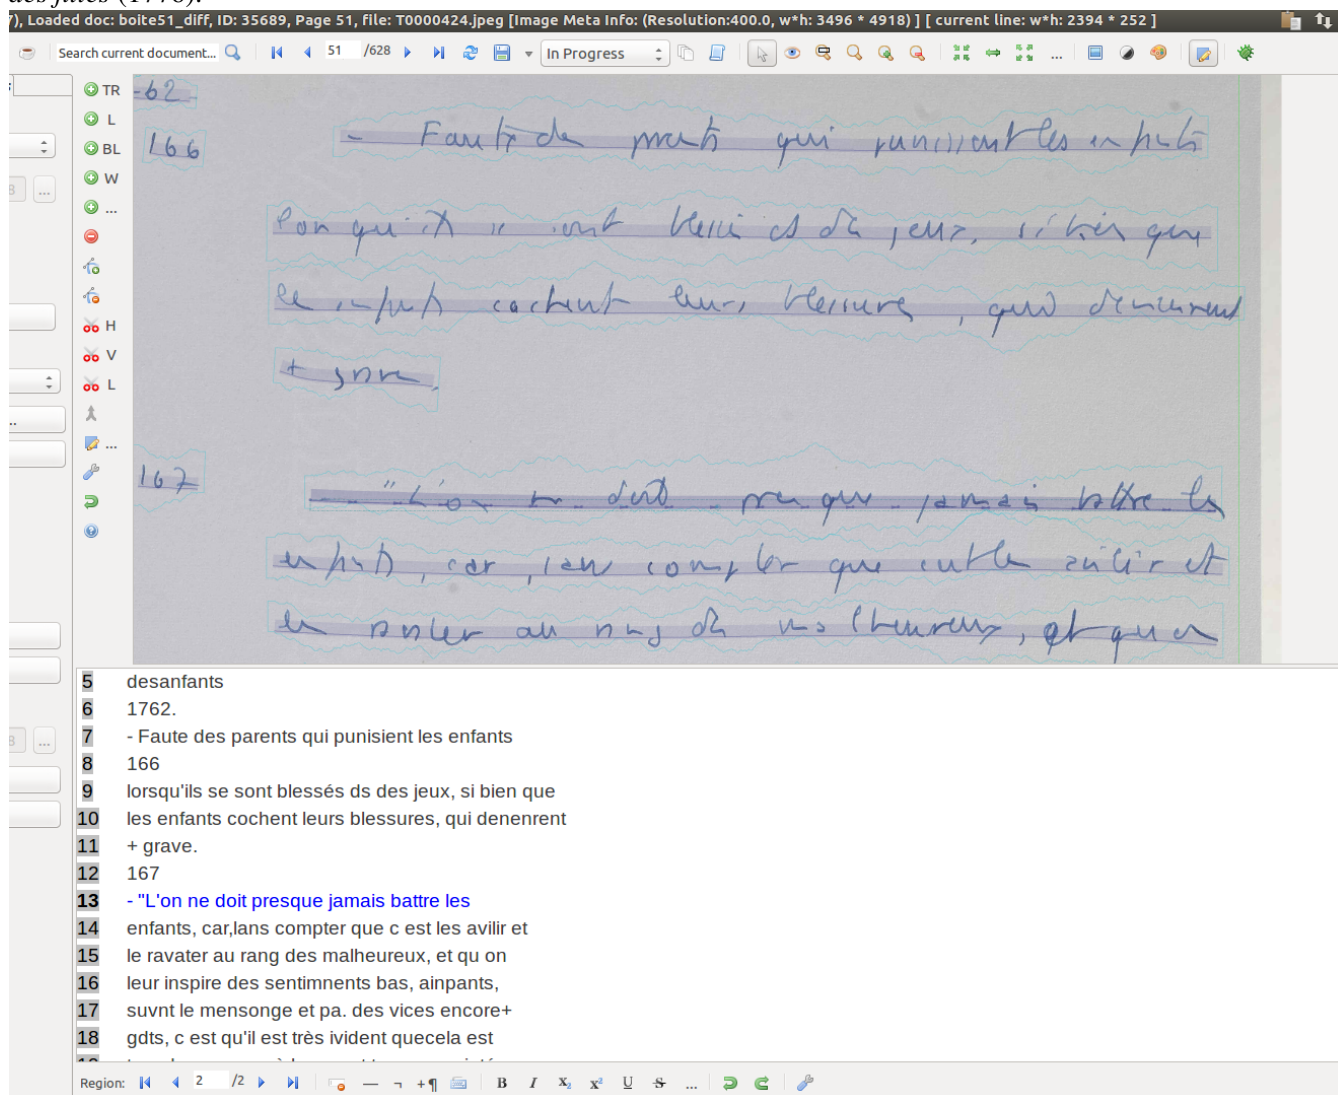 des filles (1776).
7), Loaded doc: boite51_diff, ID: 35689, Page 51, file: T0000424.jpeg [Image Meta Info: (Resolution:400.0, w*h: 3496 * 4918) ] [ current line: w*h: 2394 * 252 ]
Search current document... 51 /628 In Progress ...
TR
L
BL
W
...
H
V
L
...
-62-
166 - Faute de parents qui punissent les enfants
lorsqu'ils se sont blessés ds des jeux, si bien que
les enfants cachent leurs blessures, qui deviennent
+ grave.
167 - "L'on ne doit presque jamais battre les
enfants, car, sans compter que c'est les avilir et
les ravaler au rang des malheureux, et qu'on
5 desanfants
6 1762.
7 - Faute des parents qui punisient les enfants
8 166
9 lorsqu'ils se sont blessés ds des jeux, si bien que
10 les enfants cochent leurs blessures, qui denenrent
11 + grave.
12 167
13 - "L'on ne doit presque jamais battre les
14 enfants, car,lans compter que c est les avilir et
15 le ravater au rang des malheureux, et qu on
16 leur inspire des sentimnents bas, ainpants,
17 suvnt le mensonge et pa. des vices encore+
18 gdts, c est qu'il est très ivident quecela est
Region: 2 /2 — ¬ +¶ B I X₂ X² U S ...